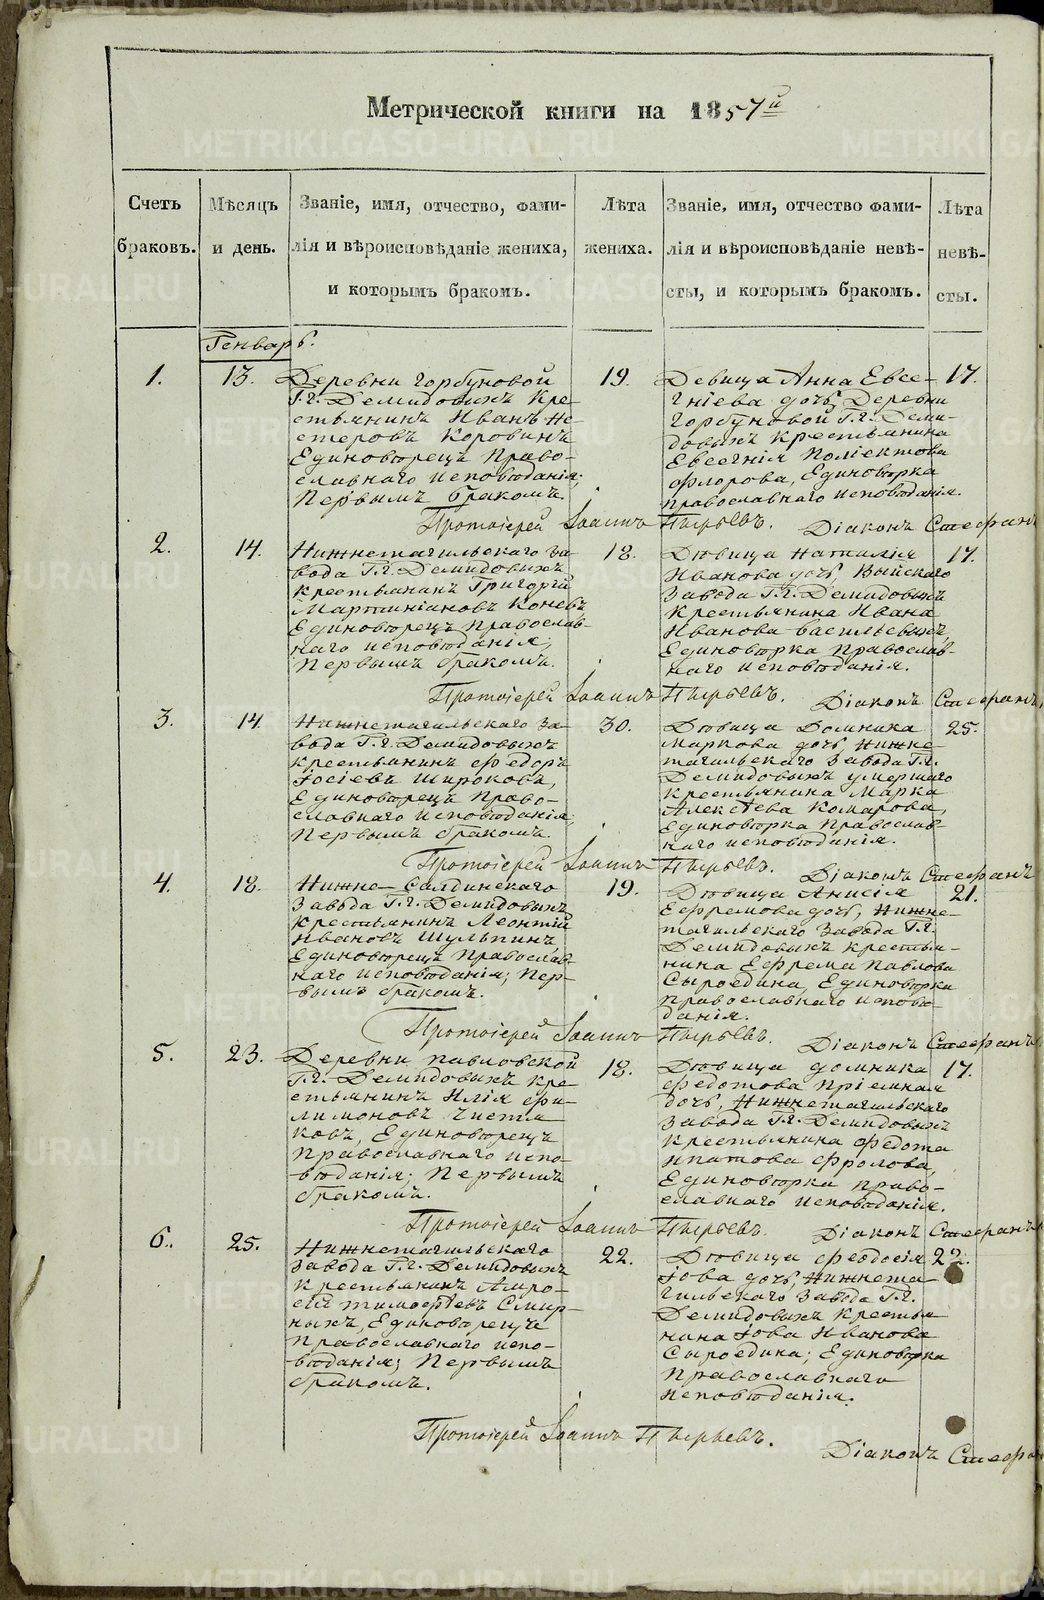 Метрической книги на 1857й
Счетъ браковъ.
Мѣсяцъ и день.
Званіе, имя, отчество, фами-
лія и вѣроисповѣданіе жениха,
и которымъ бракомъ.
Лѣта жениха.
Званіе, имя, отчество фами-
лія и вѣроисповѣданіе невѣ-
сты, и которымъ бракомъ.
Лѣта невѣ-
сты.
Генварь.
1.
13.
Деревни Горбуновой
Г.г. Демидовыхъ Кре-
стьянинъ Иванъ Не-
стеровъ Коровинъ
Единоверецъ Право-
славнаго исповѣданія;
Первымъ бракомъ.
19.
Девица Анна Евсе-
гніева дочь, Деревни
Горбуновой Г.г. Деми-
довыхъ крестьянина
Евсегнія Поліектова
Флорова, Единоверка
православнаго исповѣданія.
17.
Протоіерей Іоаннъ Пырьевъ. Діаконъ Стефанъ
2.
14.
Нижнетагильскаго За-
вода Г.г. Демидовыхъ
крестьянинъ Григорій
Мартиніановъ Коневъ
Единоверецъ Православ-
наго исповѣданія;
Первымъ бракомъ.
18.
Дѣвица Наталія
Иванова дочь, Выйскаго
Завода Г.г. Демидовыхъ
крестьянина Ивана
Иванова Васильевыхъ,
Единоверка Православ-
наго исповѣданія.
17.
Протоіерей Іоаннъ Пырьевъ. Діаконъ Стефанъ
3.
14.
Нижнетагильскаго За-
вода Г.г. Демидовыхъ
крестьянинъ Федоръ
Іосіевъ Широковъ,
Единоверецъ Право-
славнаго исповѣданія;
Первымъ бракомъ.
30.
Дѣвица Домника
Маркова дочь, Нижне-
тагильскаго Завода Г.г.
Демидовыхъ умершаго
крестьянина Марка
Алексѣева Комарова,
Единоверка Православ-
наго исповѣданія.
25.
Протоіерей Іоаннъ Пырьевъ. Діаконъ Стефанъ
4.
18.
Нижне-Салдинскаго
Завода Г.г. Демидовыхъ
крестьянинъ Леонтій
Ивановъ Шульпинъ,
Единоверецъ Православ-
наго исповѣданія; Пер-
вымъ бракомъ.
19.
Дѣвица Анисія
Ефремова дочь, Нижне-
тагильскаго Завода Г.г.
Демидовыхъ крестья-
нина Ефрема Павлова
Сыроедина, Единоверка
Православнаго исповѣ-
данія.
21.
Протоіерей Іоаннъ Пырьевъ. Діаконъ Стефанъ
5.
23.
Деревни Павловской
Г.г. Демидовыхъ кре-
стьянинъ Илія Фи-
лимоновъ Чистя
ковъ, Единоверецъ
Православнаго испо-
вѣданія; Первымъ
бракомъ.
18.
Дѣвица Домника
Федотова пріемная
дочь, Нижнетагильскаго
Завода Г.г. Демидовыхъ
крестьянина Федота
Ипатова Фролова,
Единоверка право-
славнаго исповѣданія.
17.
Протоіерей Іоаннъ Пырьевъ. Діаконъ Стефанъ
6.
25.
Нижнетагильскаго
Завода Г.г. Демидовыхъ
крестьянинъ Амро-
сій Тимофѣевъ Смир-
ныхъ, Единоверецъ
Православнаго испо-
вѣданія; Первымъ
бракомъ.
22.
Дѣвица Феодосія
Іова дочь, Нижнета-
гильскаго Завода Г.г.
Демидовыхъ крестья
нина Іова Иванова
Сыроедина; Единоверка
Православнаго
исповѣданія.
22.
Протоіерей Іоаннъ Пырьевъ.
Діаконъ Стефа